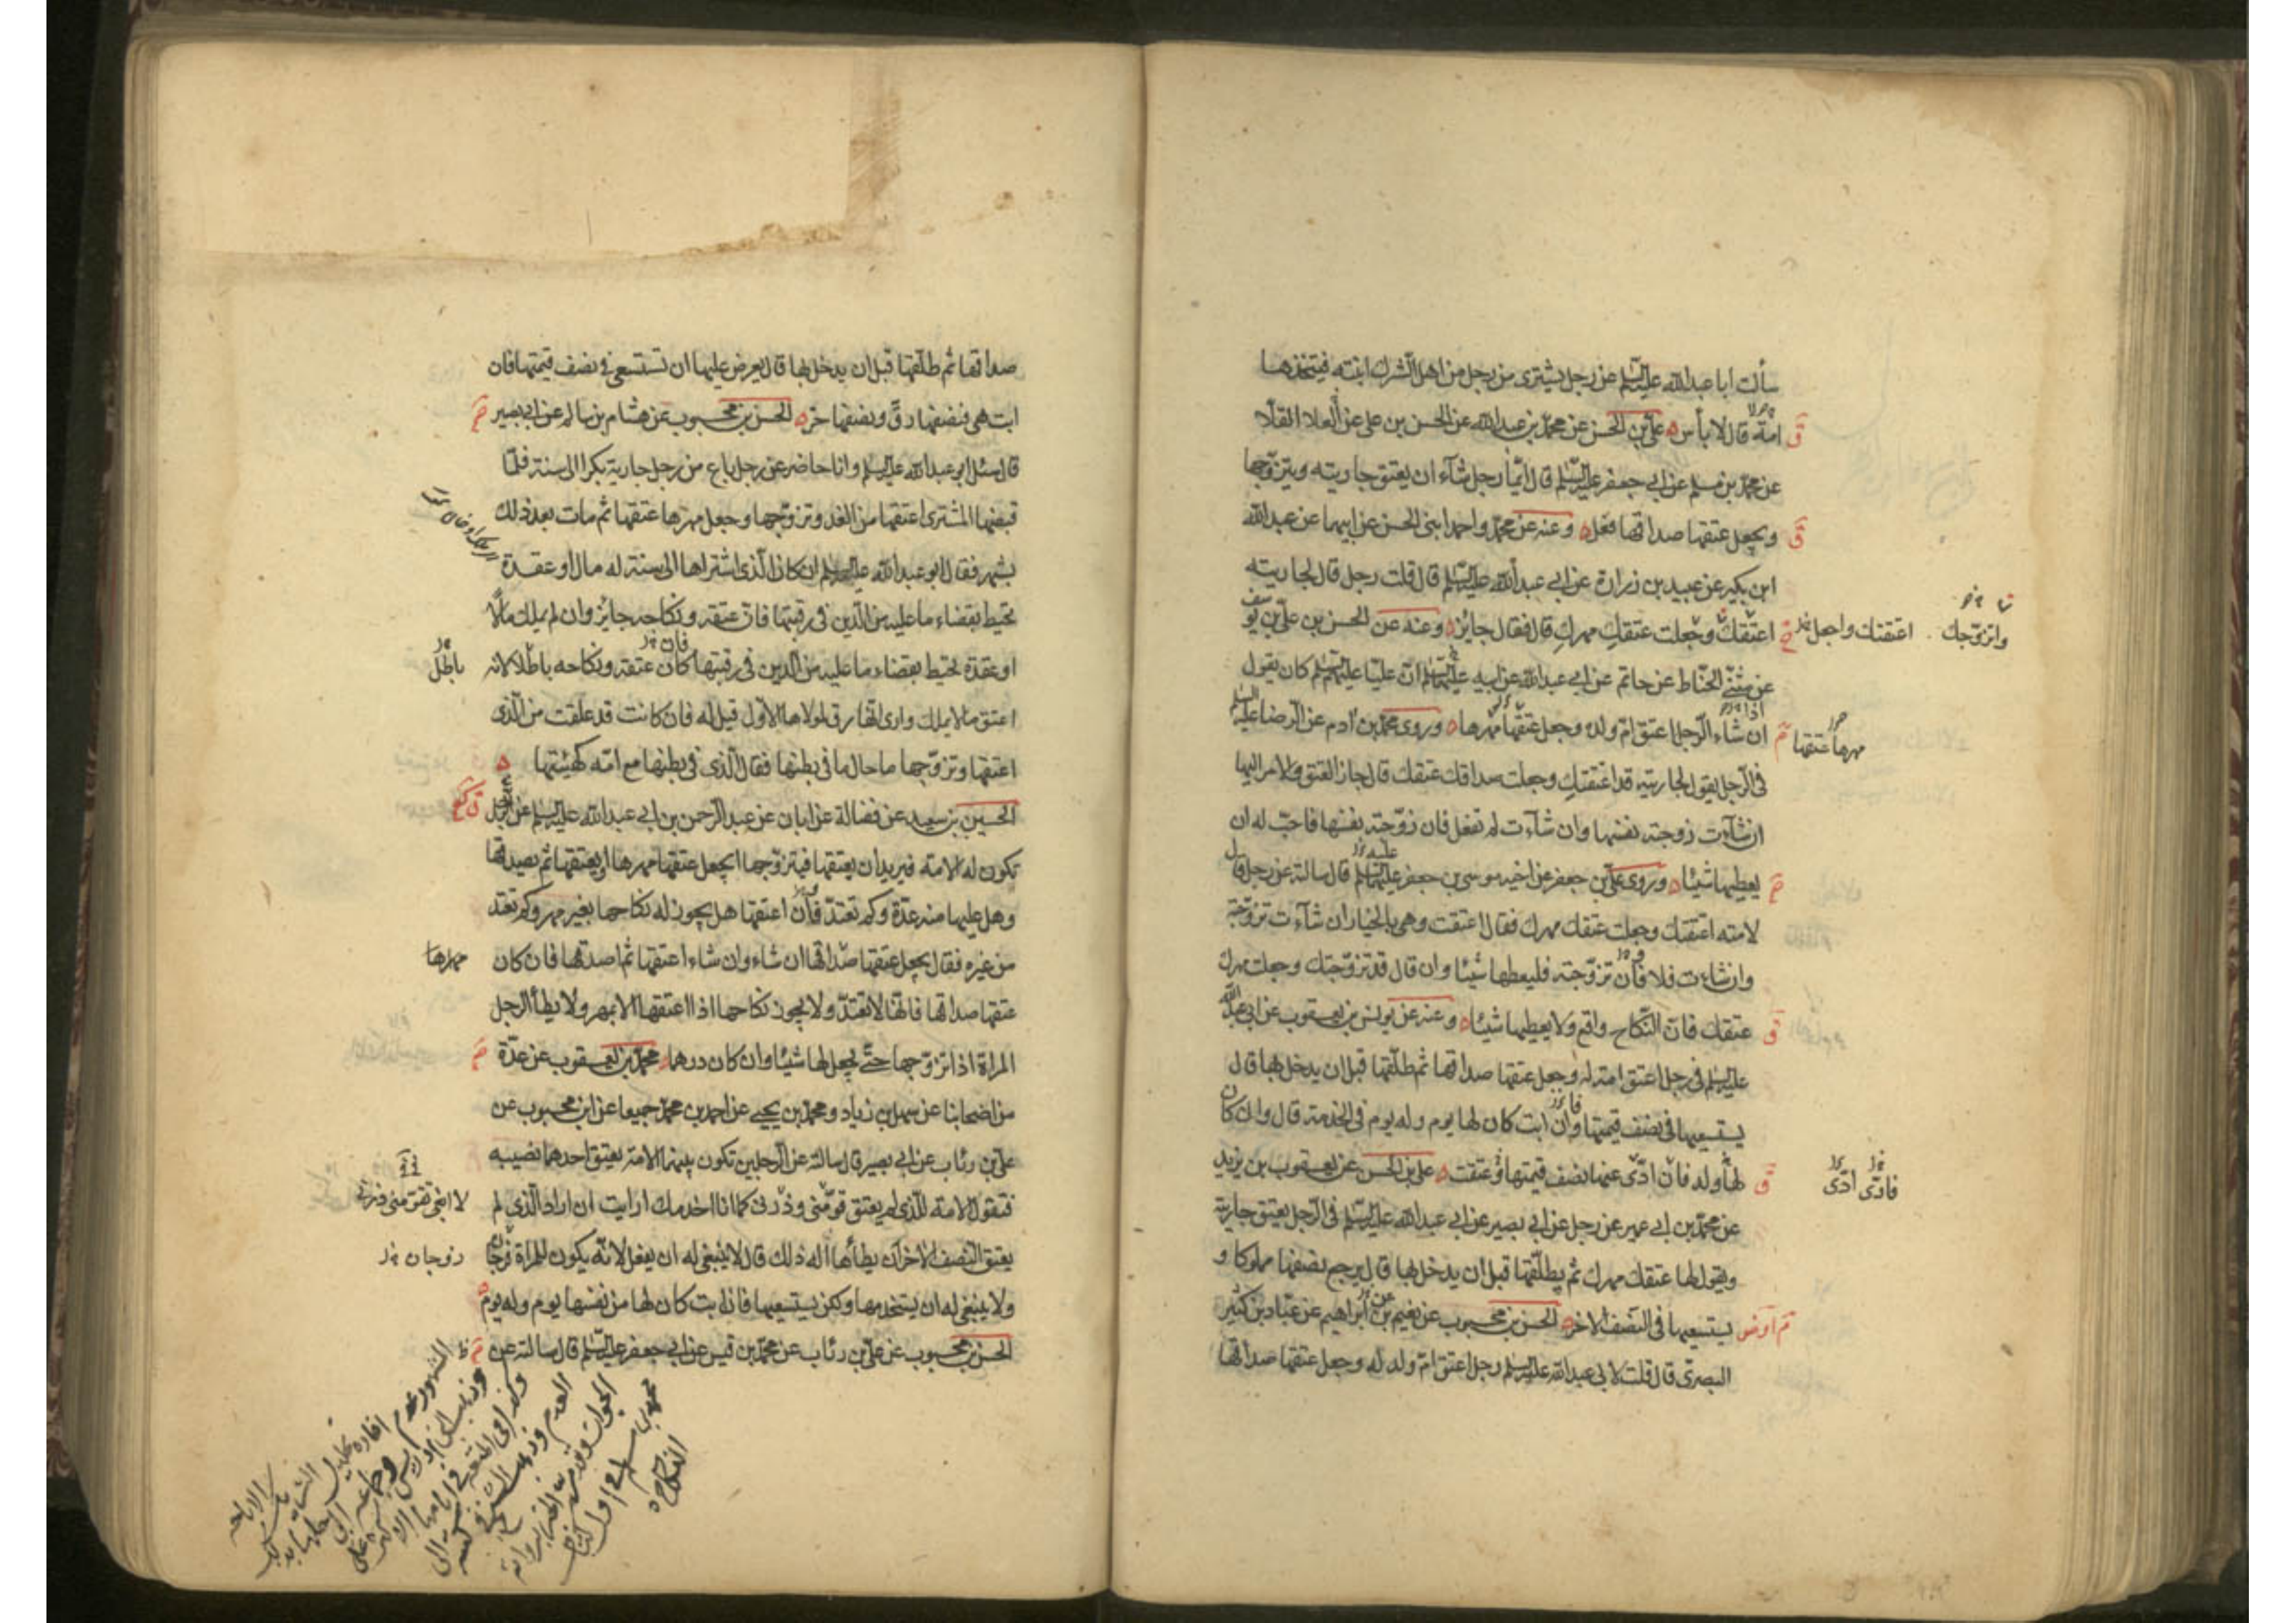 سألت ابا عبدالله عليه السلم عن رجل يشترى من رجل من اهل الشرك ابنته فيتخذها
امة قال لا بأس علي بن الحسن عن محمد بن عبدالله عن الحسن بن على عن العلا القلا
عن محمد بن مسلم عن ابى جعفر عليه السلم قال ايما رجل شاء ان يعتق جاريته ويتزوجها
ويجعل عتقها صداقها فعل وعنه عن محمد واحمد ابنى الحسن عن ابيهما عن عبدالله
ابن بكير عن عبيد بن زرارة عن ابى عبدالله عليه السلم قال قلت رجل قال لجاريته
اعتقتك وجعلت عتقك مهرك قال فقال جائز وعنه عن الحسن بن على بن يوسف
واتزوجك
اعتقتك واجعل
عن مثنى الحناط عن حاتم عن ابى عبدالله عن ابيه عليهما السلم ان عليا عليه السلم كان يقول
ان شاء الرجل اعتق ام ولده وجعل عتقها مهرها وروى محمد بن آدم عن الرضا عليه السلم
مهرها عتقها
فى الرجل يقول لجاريته قد اعتقتك وجعلت صداقك عتقك قال جاز العتق والامر اليها
ان شاءت زوجته نفسها وان شاءت لم تفعل فان زوجته نفسها فاحب له ان
يعطيها شيئا وروى على بن جعفر عن اخيه موسى بن جعفر عليهما السلم قال سالته عن رجل قال
لامته اعتقتك وجعلت عتقك مهرك فقال اعتقت وهى بالخيار ان شاءت تزوجته
وان شاءت فلا فان تزوجته فليعطها شيئا وان قال قد تزوجتك وجعلت مهرك
عتقك فان النكاح واقع ولا يعطيها شيئا وعنه عن يونس بن يعقوب عن ابى عبد الله
عليه السلم فى رجل اعتق امة له وجعل عتقها صداقها ثم طلقها قبل ان يدخل بها قال
يستسعيها فى نصف قيمتها وان ابت كان لها يوم وله يوم فى الخدمة قال وان كان
لها ولد فان ادى عنها نصف قيمتها وعتقت على بن الحسن عن يعقوب بن يزيد
فادى ادى
عن محمد بن ابى عمير عن رجل عن ابى بصير عن ابى عبدالله عليه السلم فى الرجل يعتق جارية
ويقول لها عتقك مهرك ثم يطلقها قبل ان يدخل بها قال يرجع نصفها مملوكا و
يستسعيها فى النصف الاخر الحسن بن محبوب عن نعيم بن ابراهيم عن عباد بن كثير
البصرى قال قلت لابى عبدالله عليه السلم رجل اعتق ام ولد له وجعل عتقها صداقها
صداقها ثم طلقها قبل ان يدخل بها قال يعرض عليها ان تستسعى فى نصف قيمتها فان
ابت هى فنصفها رق ونصفها حر الحسن بن محبوب عن هشام بن سالم عن ابى بصير
قال سئل ابو عبدالله عليه السلم وانا حاضر عن رجل باع من رجل جارية بكرا الى سنة فلما
قبضها المشترى اعتقها من الغد وتزوجها وجعل مهرها عتقها ثم مات بعد ذلك
بشهر فقال ابو عبدالله عليه السلم ان كان الذى اشتراها الى سنة له مال او عقدة
تحيط بقضاء ما عليه من الدين فى رقبتها فان عتقه ونكاحه جايز وان لم يملك مالا
او عقدة تحيط بقضاء ما عليه من الدين فى رقبتها كان عتقه ونكاحه باطلا لانه
باطل
اعتق ما لا يملك وارى انها رق لمولاها الاول قيل له فان كانت قد علقت من الذى
اعتقها وتزوجها ما حال ما فى بطنها فقال الذى فى بطنها مع امه كهيئتها
الحسين بن سعيد عن فضالة عن ابان عن عبد الرحمن بن ابى عبدالله عليه السلم عن الرجل
تكون له الامة فيريد ان يعتقها فيتزوجها ايجعل عتقها مهرها او يعتقها ثم يصدقها
وهل عليها منه عدة وكم تعتد فان اعتقها هل يجوز له نكاحها بغير مهر وكم تعتد
من غيره فقال يجعل عتقها صداقها ان شاء وان شاء اعتقها ثم اصدقها فان كان
مهرها
عتقها صداقها فانها لا تعتد ولا يجوز نكاحها اذا اعتقها الا بمهر ولا يطأ الرجل
المراة اذا تزوجها حتى يجعل لها شيئا وان كان درهما محمد بن يعقوب عن عدة
من اصحابنا عن سهل بن زياد ومحمد بن يحيى عن احمد بن محمد جميعا عن ابن محبوب عن
على بن رئاب عن ابى بصير قال سالته عن الرجلين تكون بينهما الامة يعتق احدهما نصيبه
فتقول الامة للذى لم يعتق قومنى وذرنى كما انا اخدمك ارايت ان اراد الذى لم
يعتق النصف الاخر ان يطأها اله ذلك قال لا ينبغى له ان يفعل لانه يكون للمراة فرجان
زوجان
ولا ينبغى له ان يستخدمها ولكن يستسعيها فان ابت كان لها من نفسها يوم وله يوم
الحسن بن محبوب عن على بن رئاب عن محمد بن قيس عن ابى جعفر عليه السلم قال سالته عن